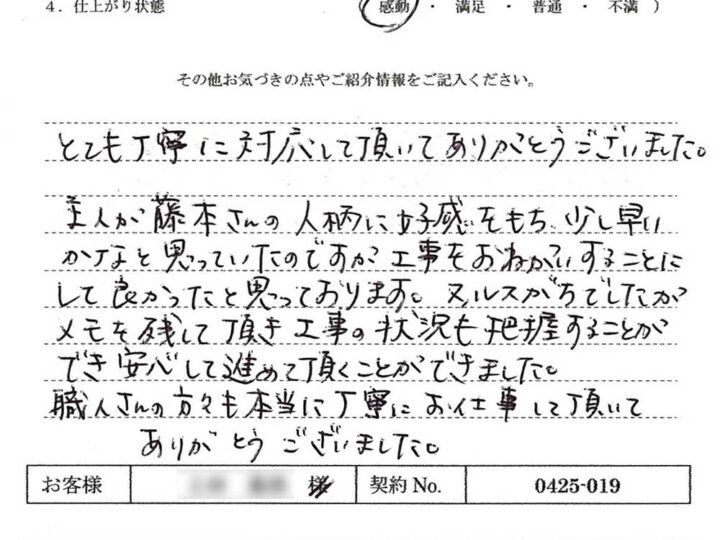 4．仕上がり状態 感動 ・ 満足 ・ 普通 ・ 不満 ）
その他お気づきの点やご紹介情報をご記入ください。
とても丁寧に対応して頂いてありがとうございました。
主人が藤本さんの人柄に好感をもち、少し早い
かなと思っていたのですが工事をおねがいすることに
して良かったと思っております。ヌルスがちでしたが
メモを残して頂き工事の状況も把握することが
でき安心して進めて頂くことができました。
職人さんの方々も本当に丁寧にお仕事して頂いて
ありがとうございました。
お客様 様 契約No. 0425-019